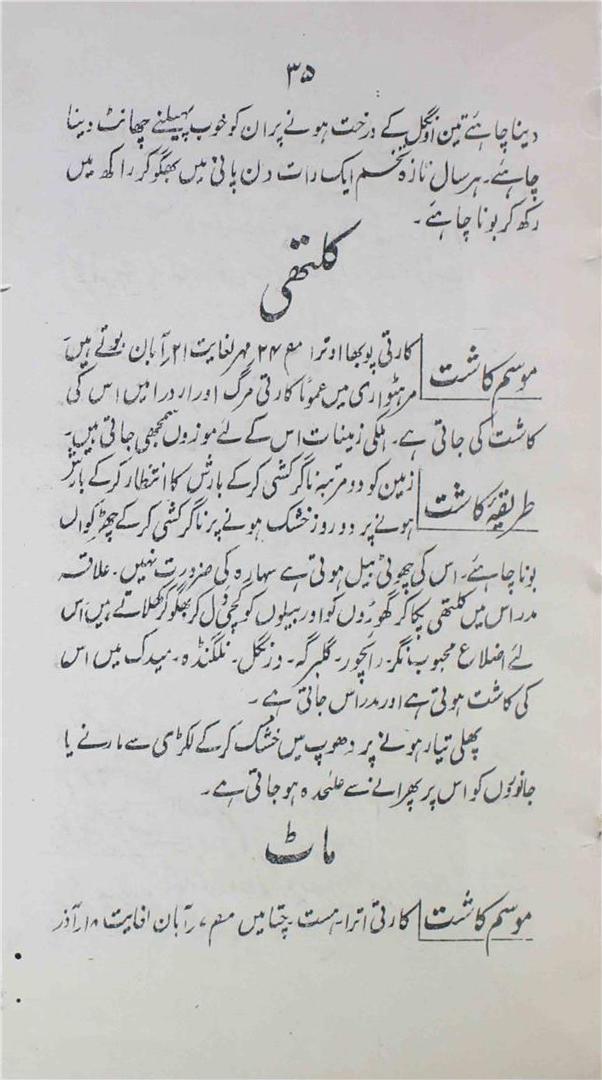 ۳۵
دینا چاہئے تین اونگل کے درخت ہونے پر ان کو خوب پھیلنے چھانٹ دینا
چاہئے۔ ہر سال تازہ تخم ایک رات دن پانی میں بھگو کر راکھ میں
رکھ کر بونا چاہئے۔
کلتھی
موسم کاشت
کارتی پوبھا اوترا م ۲۴ مہر لغایت ۲۱ آبان بوتے ہیں۔
مرہٹواری میں عموماً کارتی مرگ اور اردرا میں اس کی
کاشت کی جاتی ہے۔ ہلکی زمینات اس کے لئے موزوں سمجھی جاتی ہیں۔
طریقۂ کاشت
زمین کو دو مرتبہ ناگر کشی کر کے بارش کا انتظار کر کے بارش
ہونے پر دو روز خشک ہونے پر ناگر کشی کر کے چھڑکواں
بونا چاہئے۔ اس کی چھوٹی بیل ہوتی ہے سہارہ کی ضرورت نہیں۔ علاقہ
مدراس میں کلتھی پکا کر گھوڑوں کو اور بیلوں کو کچی دل کر بھگو کر کھلاتے ہیں اس
لئے اضلاع محبوب نگر۔ رائچور۔ گلبرگہ۔ ورنگل۔ نلگنڈہ۔ میدک میں اس
کی کاشت ہوتی ہے اور مدراس جاتی ہے۔
پھلی تیار ہونے پر دھوپ میں خشک کر کے لکڑی سے مارنے یا
جانوروں کو اس پر پھرانے سے علٰحدہ ہو جاتی ہے۔
ماٹ
موسم کاشت
کارتی اترا ہست چتا میں م ۷ آبان لغایت ۱۸ آذر